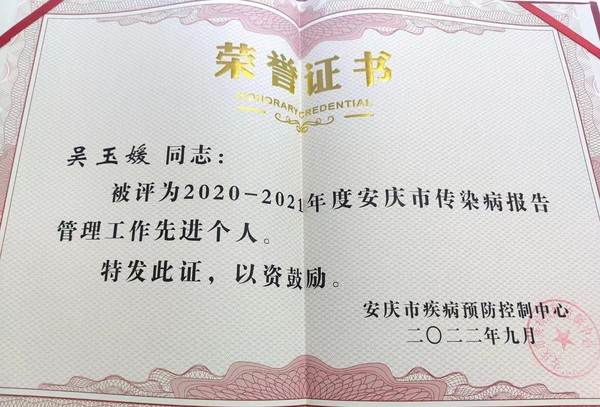 荣誉证书
HONORARY CREDENTIAL
吴玉媛 同志：
被评为2020-2021年度安庆市传染病报告
管理工作先进个人。
特发此证，以资鼓励。
安庆市疾病预防控制中心
二〇二二年九月